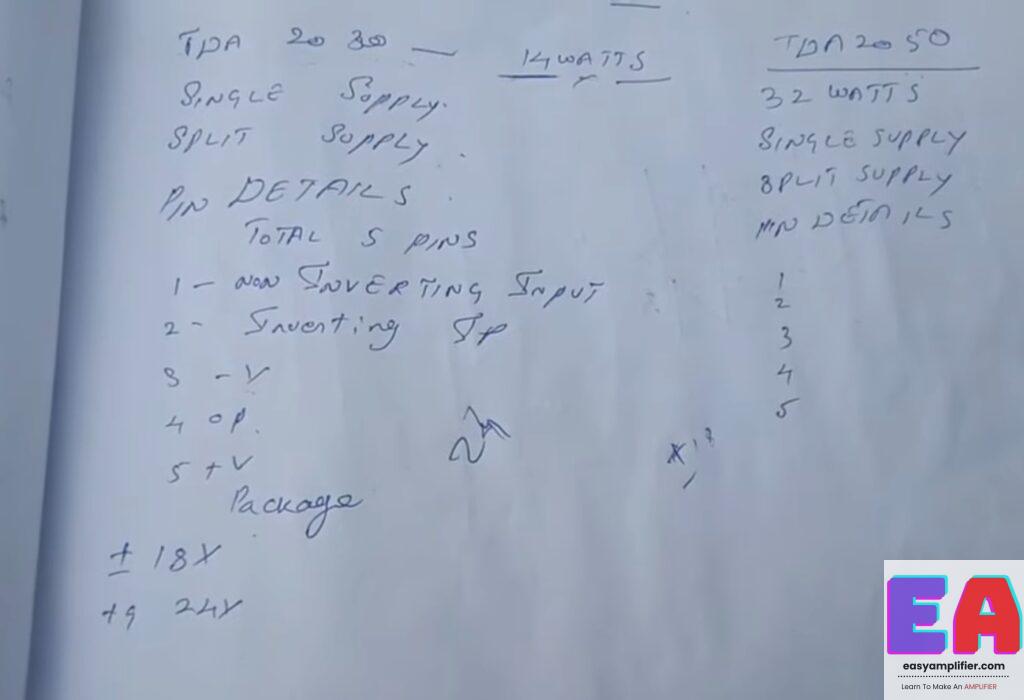 TDA 2030 — 14 WATTS
SINGLE SUPPLY.
SPLIT SUPPLY.
PIN DETAILS.
TOTAL 5 PINS
1 - NON INVERTING INPUT
2 - Inverting IP
3 - V
4 OP.
5 + V
Package
± 18V
24V
TDA 2050
32 WATTS
SINGLE SUPPLY
SPLIT SUPPLY
PIN DETAILS
1
2
3
4
5
EA
easyamplifier.com
Learn To Make An AMPLIFIER